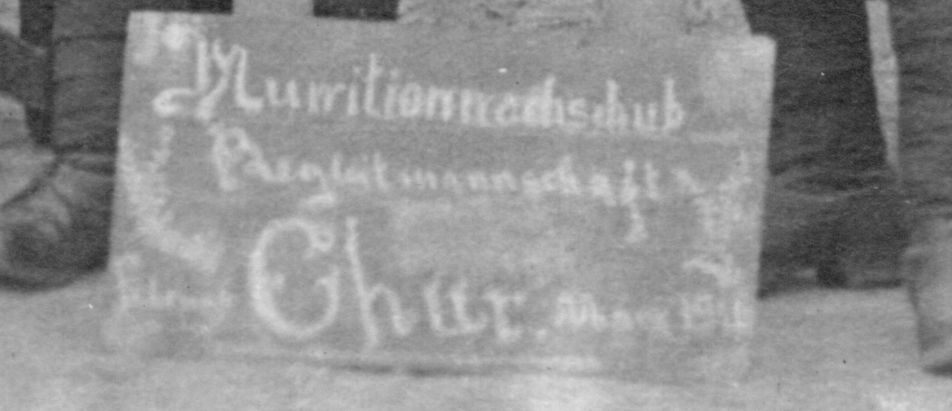 Munitionnachschub
Begleitmannschaft
Chur. März